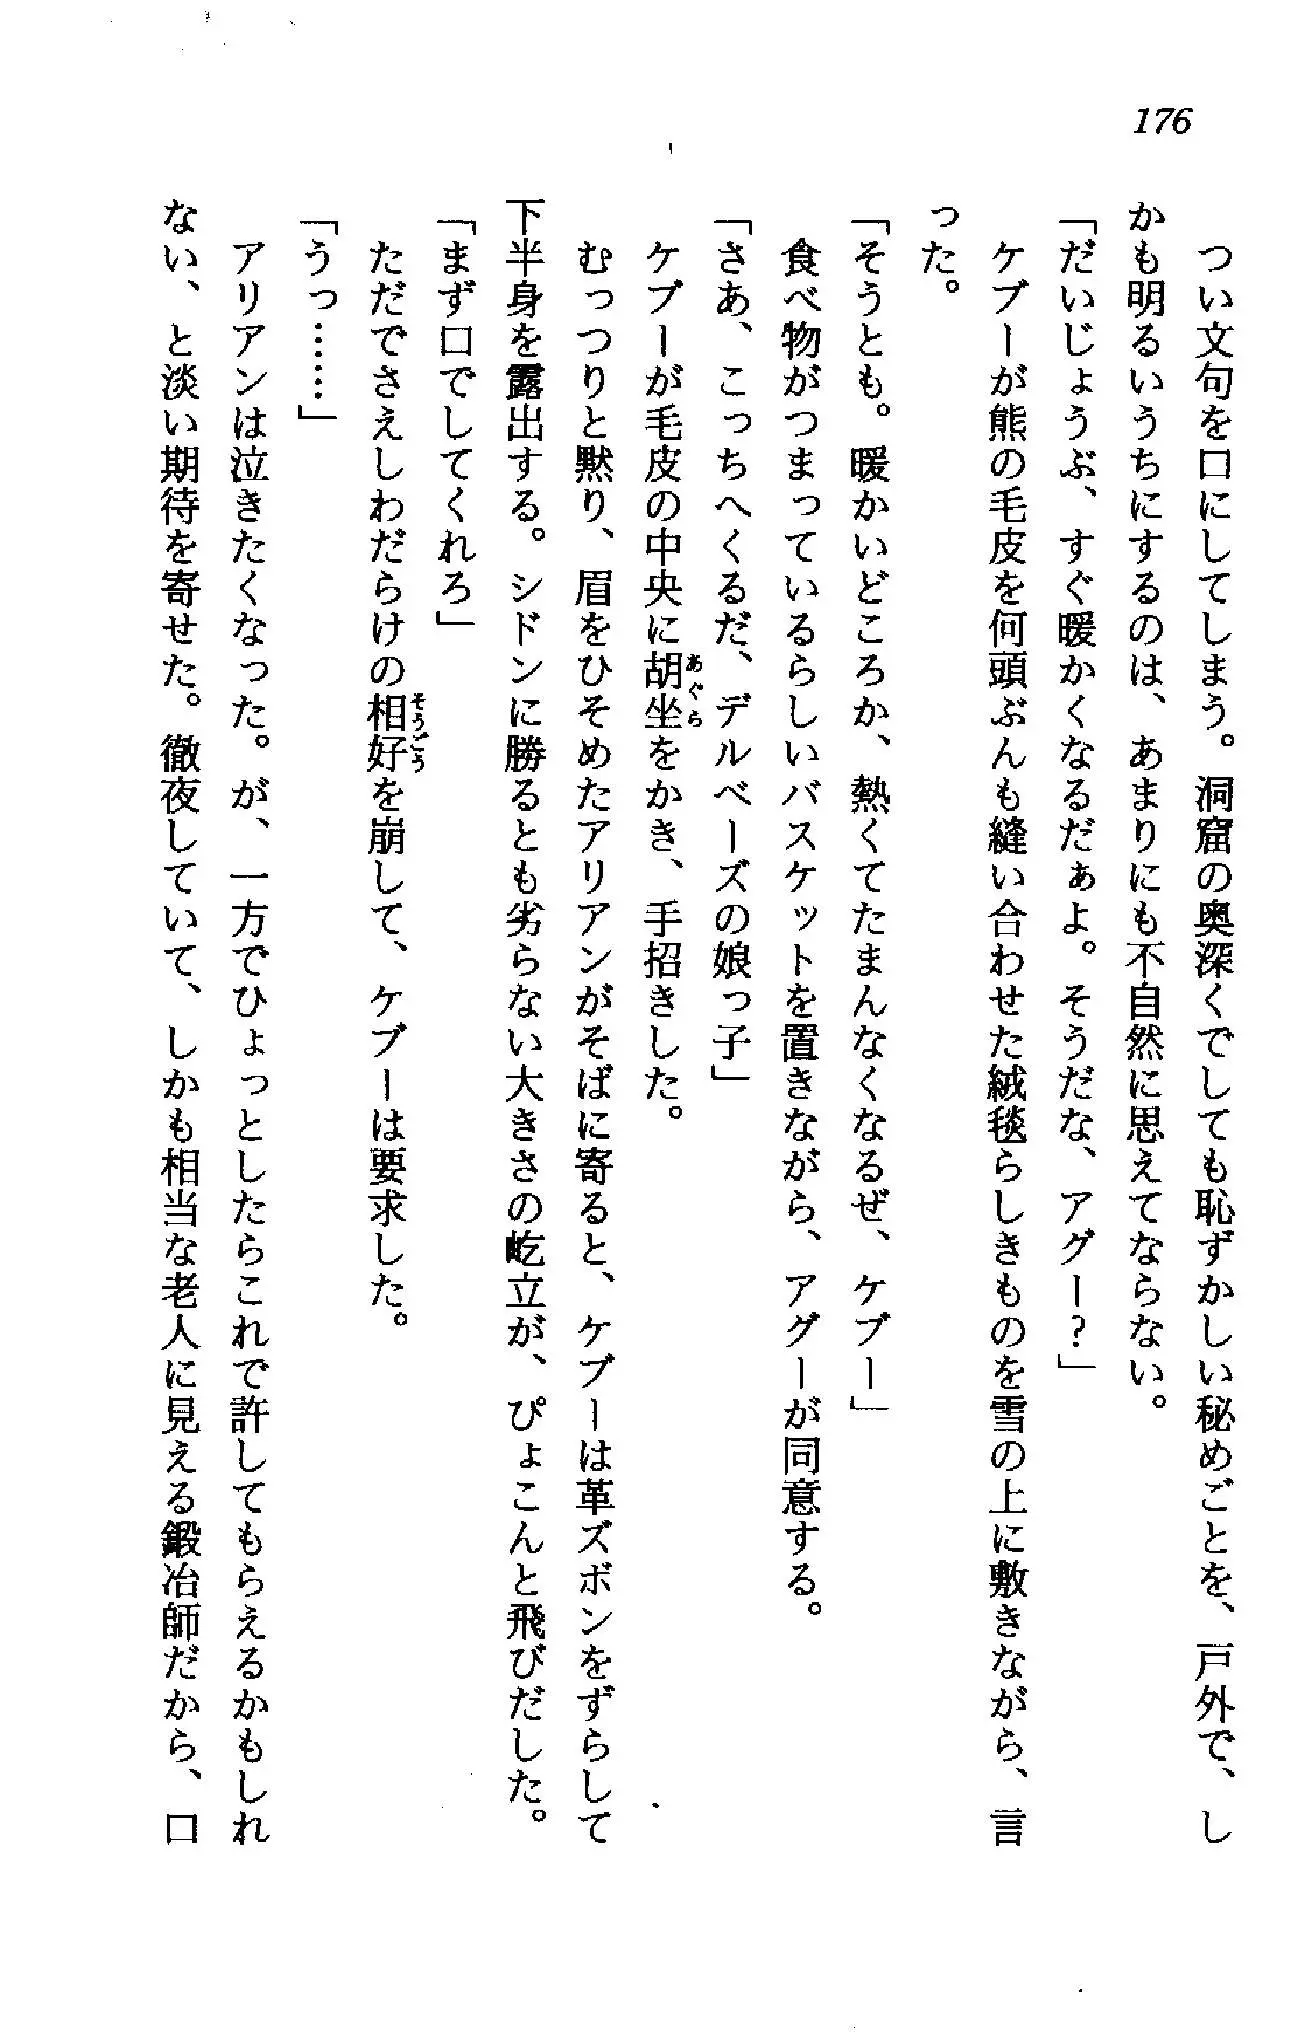 176
つい文句を口にしてしまう。洞窟の奥深くでしても恥ずかしい秘めごとを、戸外で、し
かも明るいうちにするのは、あまりにも不自然に思えてならない。
「だいじょうぶ、すぐ暖かくなるだぁよ。そうだな、アグー?」
ケブーが熊の毛皮を何頭ぶんも縫い合わせた絨毯らしきものを雪の上に敷きながら、言
った。
「そうとも。暖かいどころか、熱くてたまんなくなるぜ、ケブー」
食べ物がつまっているらしいバスケットを置きながら、アグーが同意する。
「さあ、こっちへくるだ、デルベーズの娘っ子」
ケブーが毛皮の中央に胡坐をかき、手招きした。
あぐら
むっつりと黙り、眉をひそめたアリアンがそばに寄ると、ケブーは革ズボンをずらして
下半身を露出する。シドンに勝るとも劣らない大きさの屹立が、ぴょこんと飛びだした。
「まず口でしてくれろ」
ただでさえしわだらけの相好を崩して、ケブーは要求した。
そうごう
「うっ……」
アリアンは泣きたくなった。が、一方でひょっとしたらこれで許してもらえるかもしれ
ない、と淡い期待を寄せた。徹夜していて、しかも相当な老人に見える鍛冶師だから、口